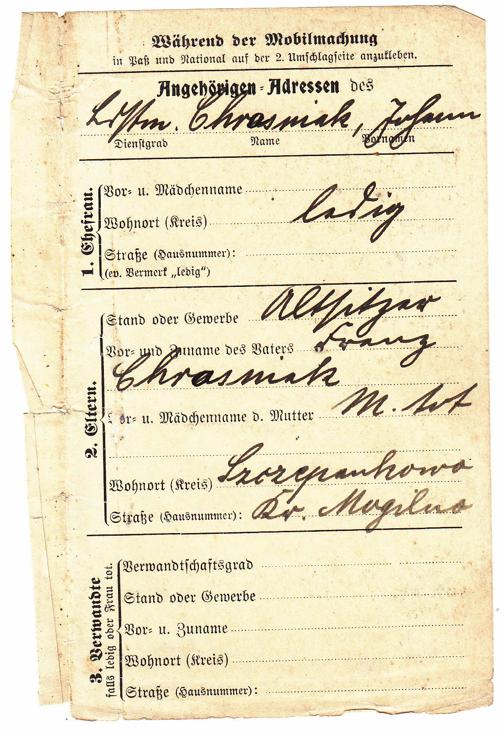 Während der Mobilmachung
in Paß und National auf der 2. Umschlagseite anzukleben.
Angehörigen-Adressen des
Ldstm. Chrosniak, Johann
Dienstgrad Name Vornamen
1. Ehefrau.
Vor- u. Mädchenname
Wohnort (Kreis) ledig
Straße (Hausnummer):
(ev. Vermerk „ledig")
2. Eltern.
Stand oder Gewerbe Altsitzer
Vor- und Zuname des Vaters Franz
Chrosniak
Vor- u. Mädchenname d. Mutter M. tot
Wohnort (Kreis) Szczepankowo
Straße (Hausnummer): Kr. Mogilno
3. Verwandte
falls ledig oder Frau tot.
Verwandtschaftsgrad
Stand oder Gewerbe
Vor- u. Zuname
Wohnort (Kreis)
Straße (Hausnummer):